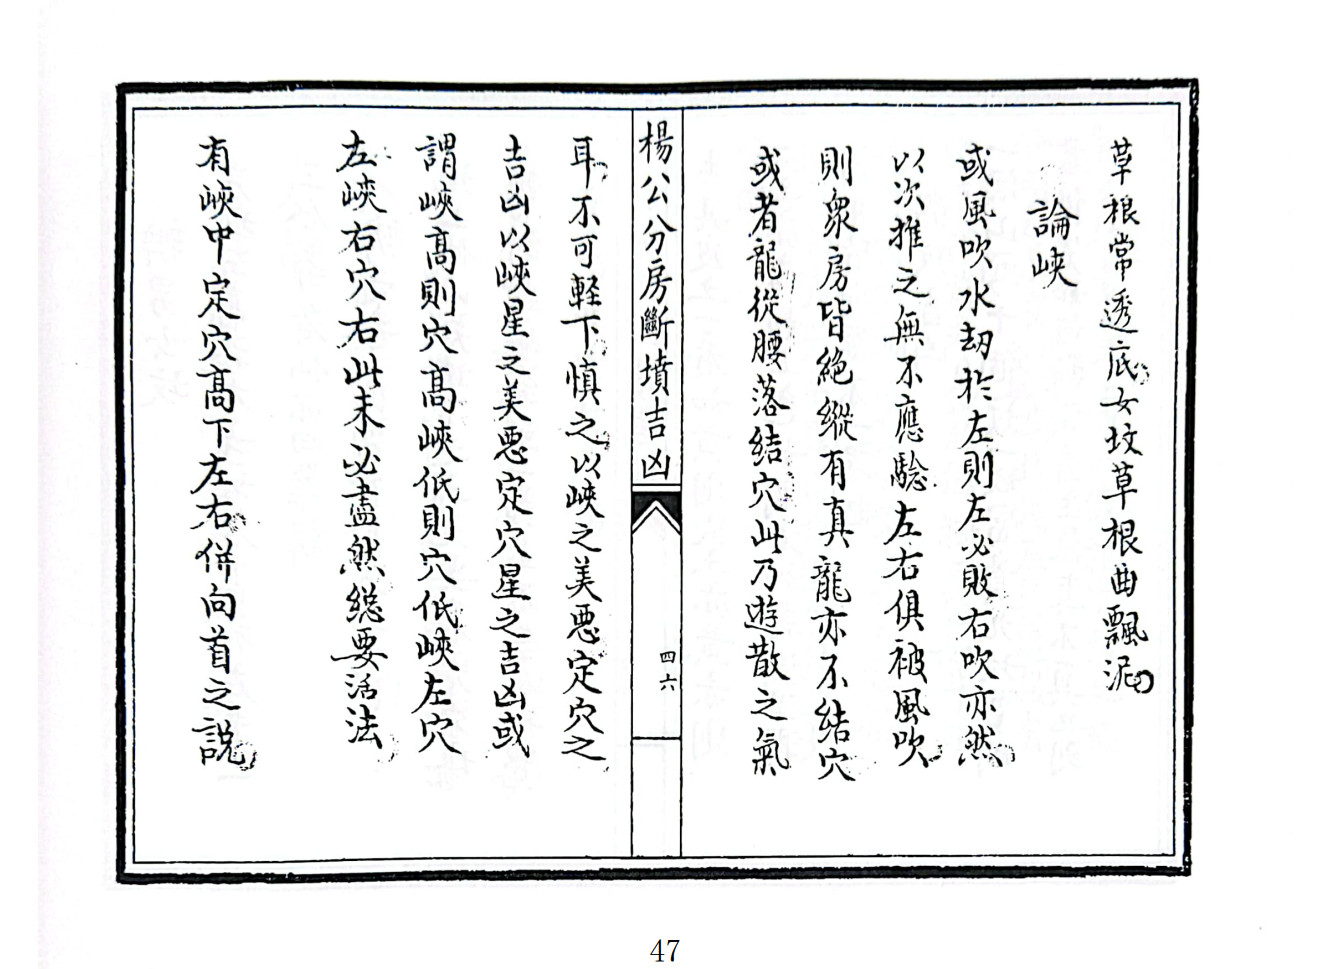 草根常透底女坟草根曲飄泥
論峽
或風吹水劫於左則左必敗右吹亦然
以次推之無不應驗左右俱被風吹
則衆房皆絶縱有真龍亦不結穴
或者龍從腰落結穴此乃遊散之氣
楊公分房斷墳吉凶
四六
耳不可軽下慎之以峽之美悪定穴之
吉凶以峽星之美悪定穴星之吉凶或
謂峽髙則穴髙峽低則穴低峽左穴
左峽右穴右此未必盡然総要活法
有峽中定穴髙下左右併向首之説
47